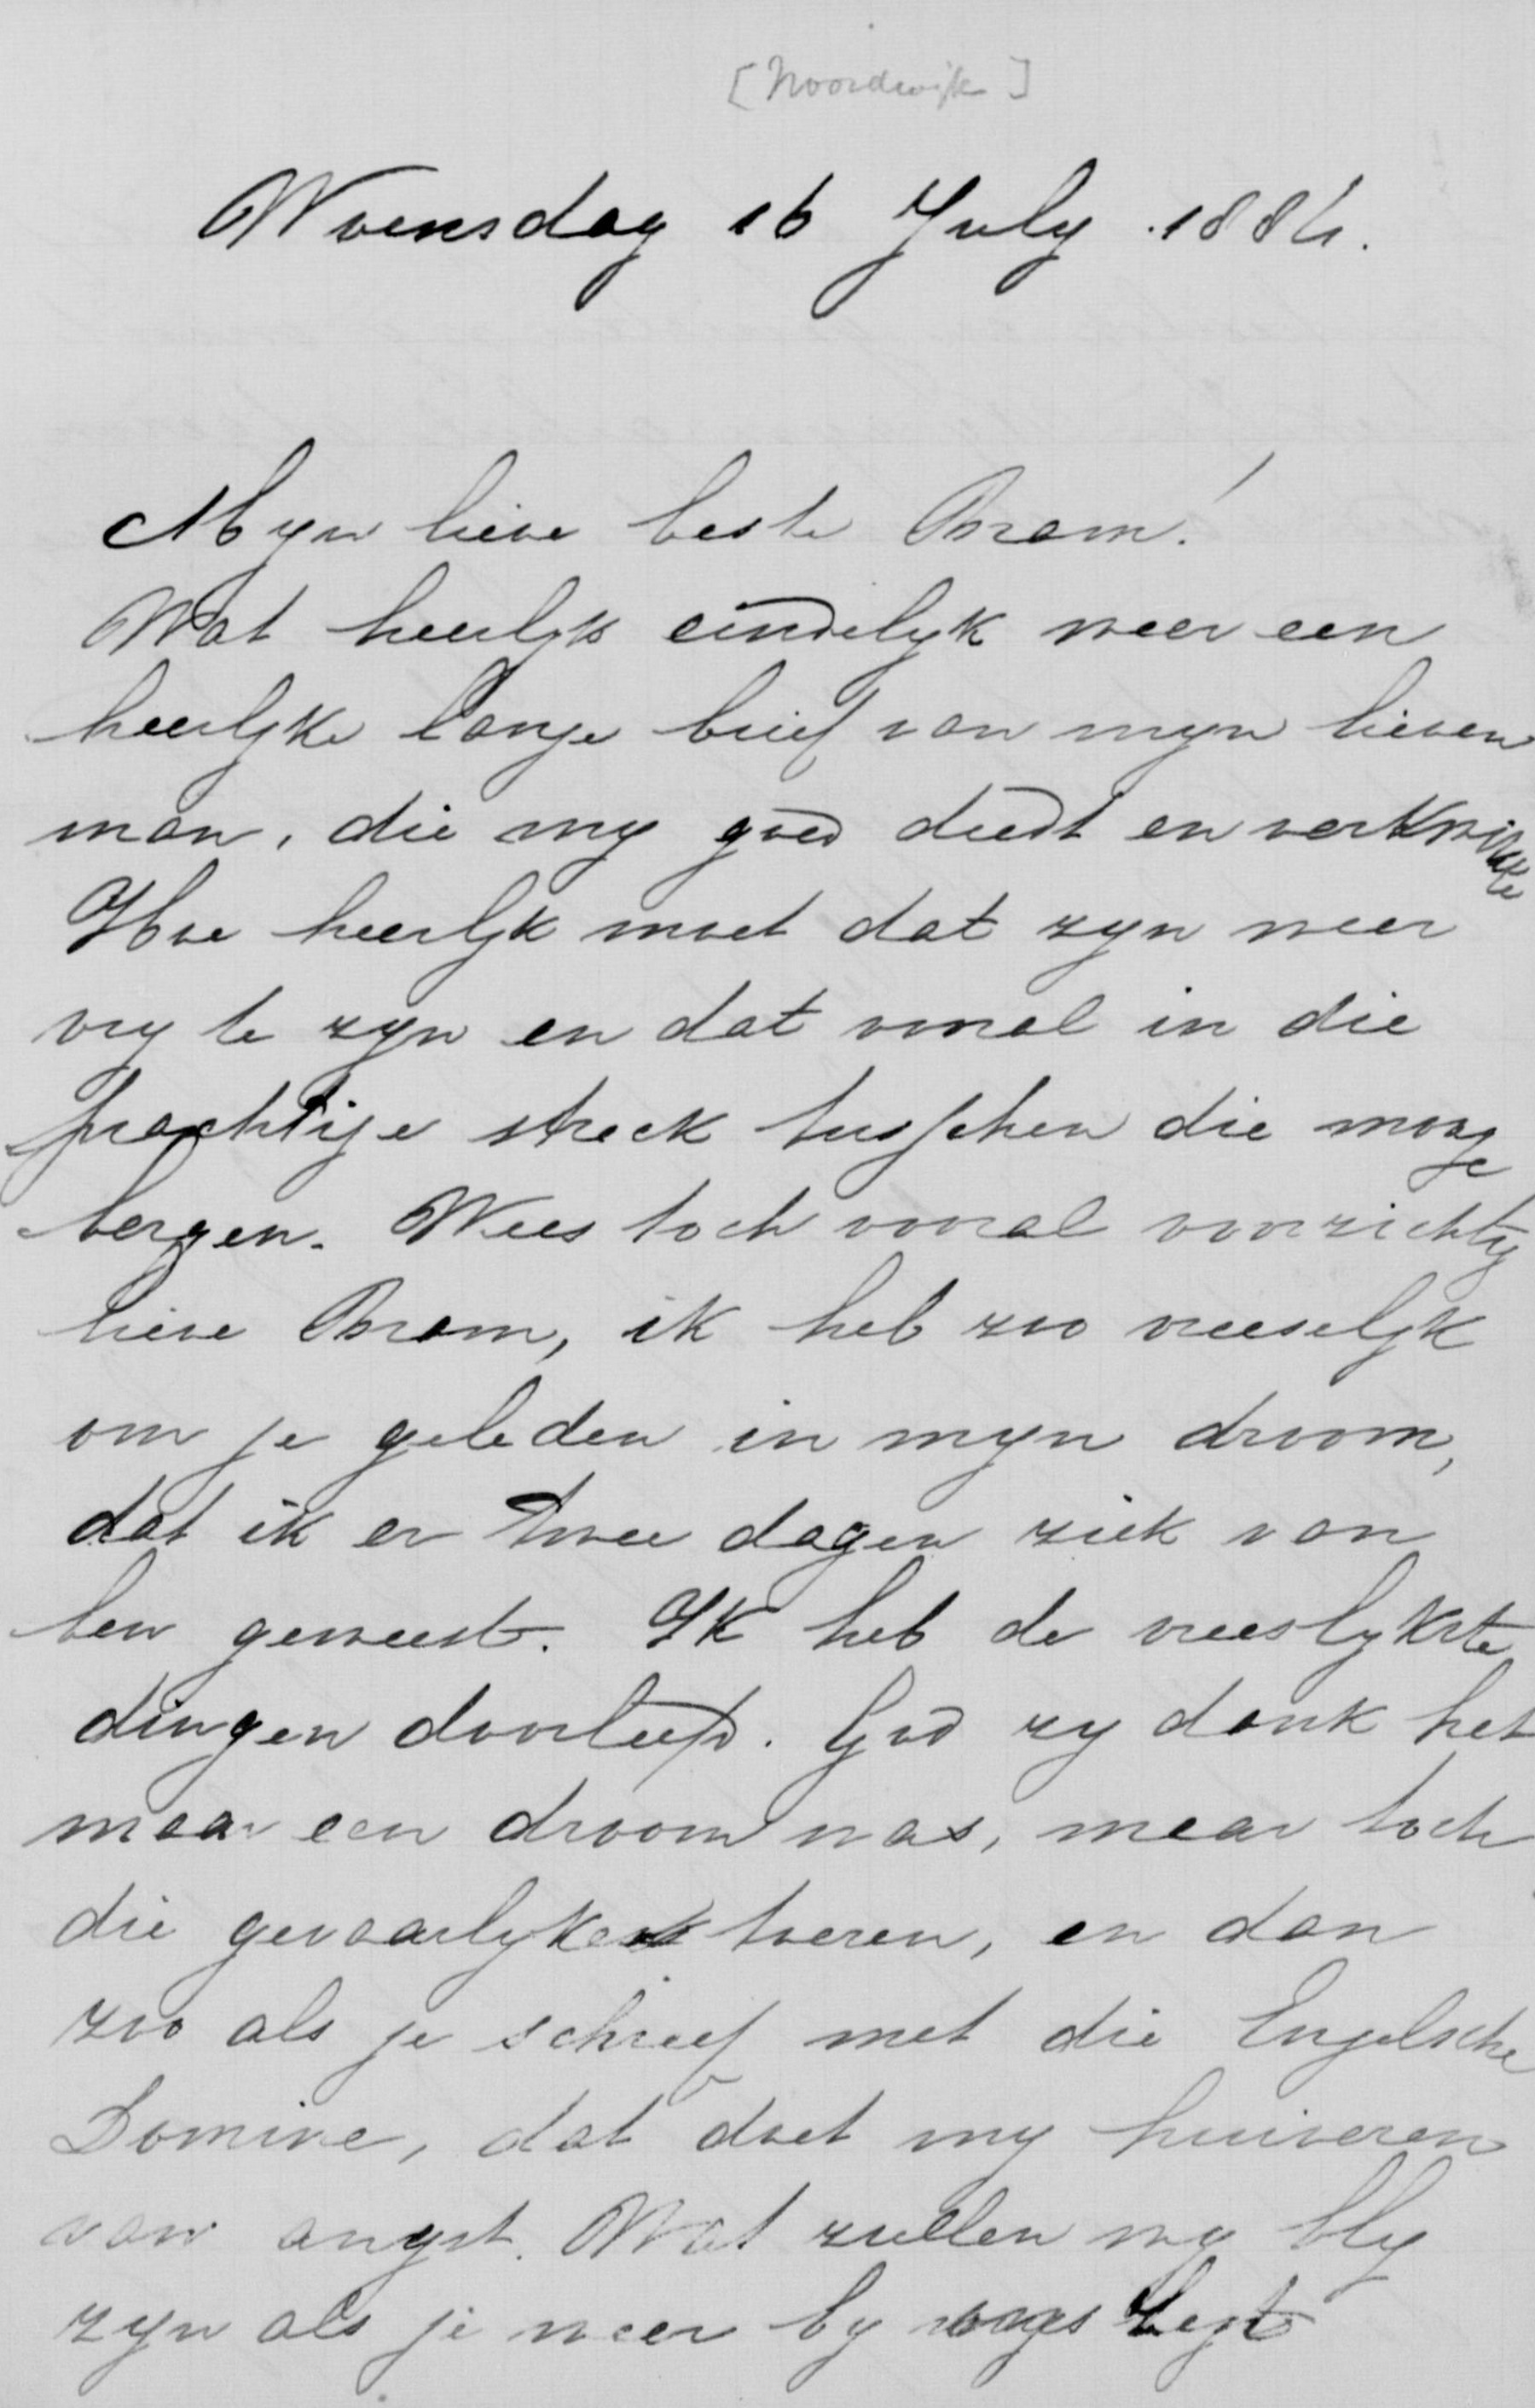 [Noordwijk]
Woensdag 16 July .1884.
Myn lieve beste Bram!
Wat heerlyk eindelyk weer een
heerlyke lange brief van myn lieven
man, die my goed deedt en verkwikte
Hoe heerlyk moet dat zyn weer
vry te zyn en dat vooral in die
prachtige streek tusschen die mooje
bergen. Wees toch vooral voorzichtig
lieve Bram, ik heb zoo vreeselyk
om je geleden in myn droom,
dat ik er twee dagen ziek van
ben geweest. Ik heb de vreeslykste
dingen doorleefd. God zy dank het
maar een droom was, maar toch
die gevaarlyke toeren, en dan
zoo als je schreef met die Engelsche
Domine, dat doet my huiveren
van angst. Wat zullen wy bly
zyn als je weer by ons zyt